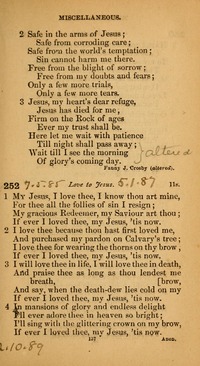 MISCELLANEOUS.
2 Safe in the arms of Jesus;
Safe from corroding care;
Safe from the world's temptation;
Sin cannot harm me there.
Free from the blight of sorrow;
Free from my doubts and fears;
Only a few more trials,
Only a few more tears.
3 Jesus, my heart's dear refuge,
Jesus has died for me,
Firm on the Rock of ages
Ever my trust shall be.
Here let me wait with patience
Till night shall pass away;
Wait till I see the morning
Of glory's coming day.
altered
Fanny J. Crosby (altered).
252 7.5.85 Love to Jesus. 5.1.87 11s.
1 My Jesus, I love thee, I know thou art mine,
For thee all the follies of sin I resign;
My gracious Redeemer, my Saviour art thou;
If ever I loved thee, my Jesus, 'tis now.
2 I love thee because thou hast first loved me,
And purchased my pardon on Calvary's tree;
I love thee for wearing the thorns on thy brow,
If ever I loved thee, my Jesus, 'tis now.
3 I will love thee in life, I will love thee in death,
And praise thee as long as thou lendest me
breath, [brow,
And say, when the death-dew lies cold on my
If ever I loved thee, my Jesus, 'tis now.
4 In mansions of glory and endless delight
I'll ever adore thee in heaven so bright;
I'll sing with the glittering crown on my brow,
If ever I loved thee, my Jesus, 'tis now.
157 Anon.
2.10.89